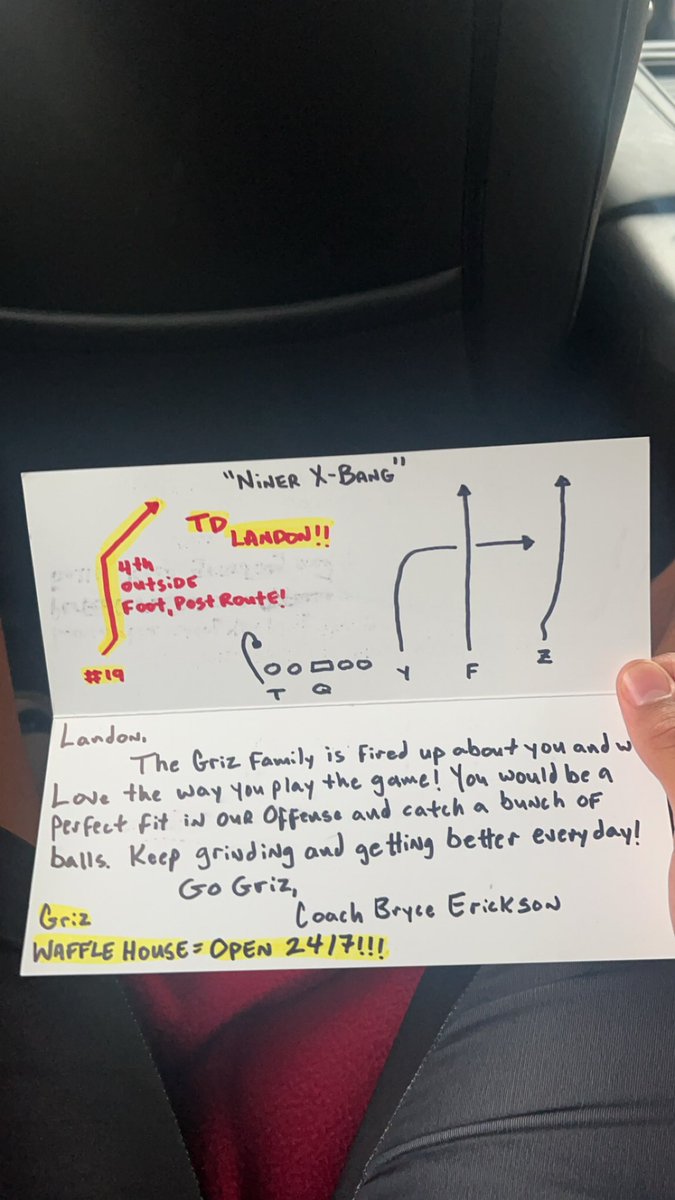 "NINER X-BANG"
TD
LANDON!!
4th
outside
Foot, Post Route!
#19
T Q Y F Z
Landon,
The Griz Family is fired up about you and
Love the way you play the game! You would be a
perfect fit in our offense and catch a bunch of
balls. Keep grinding and getting better everyday!
Go Griz,
Coach Bryce Erickson
Griz
WAFFLE HOUSE = OPEN 24/7!!!